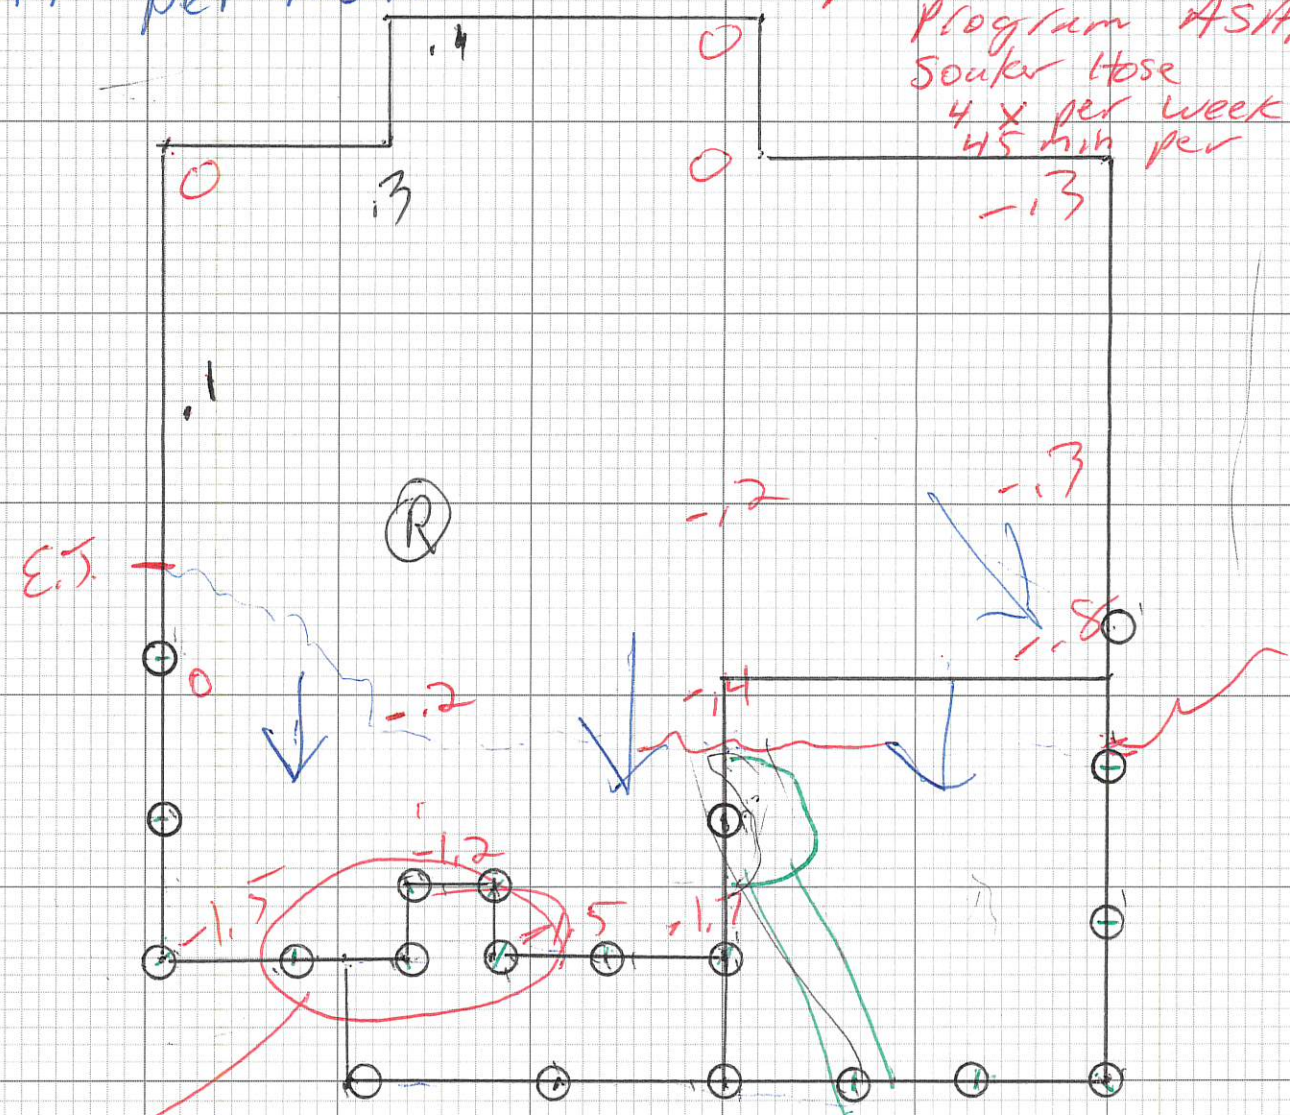 per
Program
Soaker Hose
4 x per week
45 min per
.4
0
0
0
.3
-.3
.1
-.3
-.2
R
E.J.
-.8
0
-.4
-.2
-1.2
-1.7
-1.5
-1.7